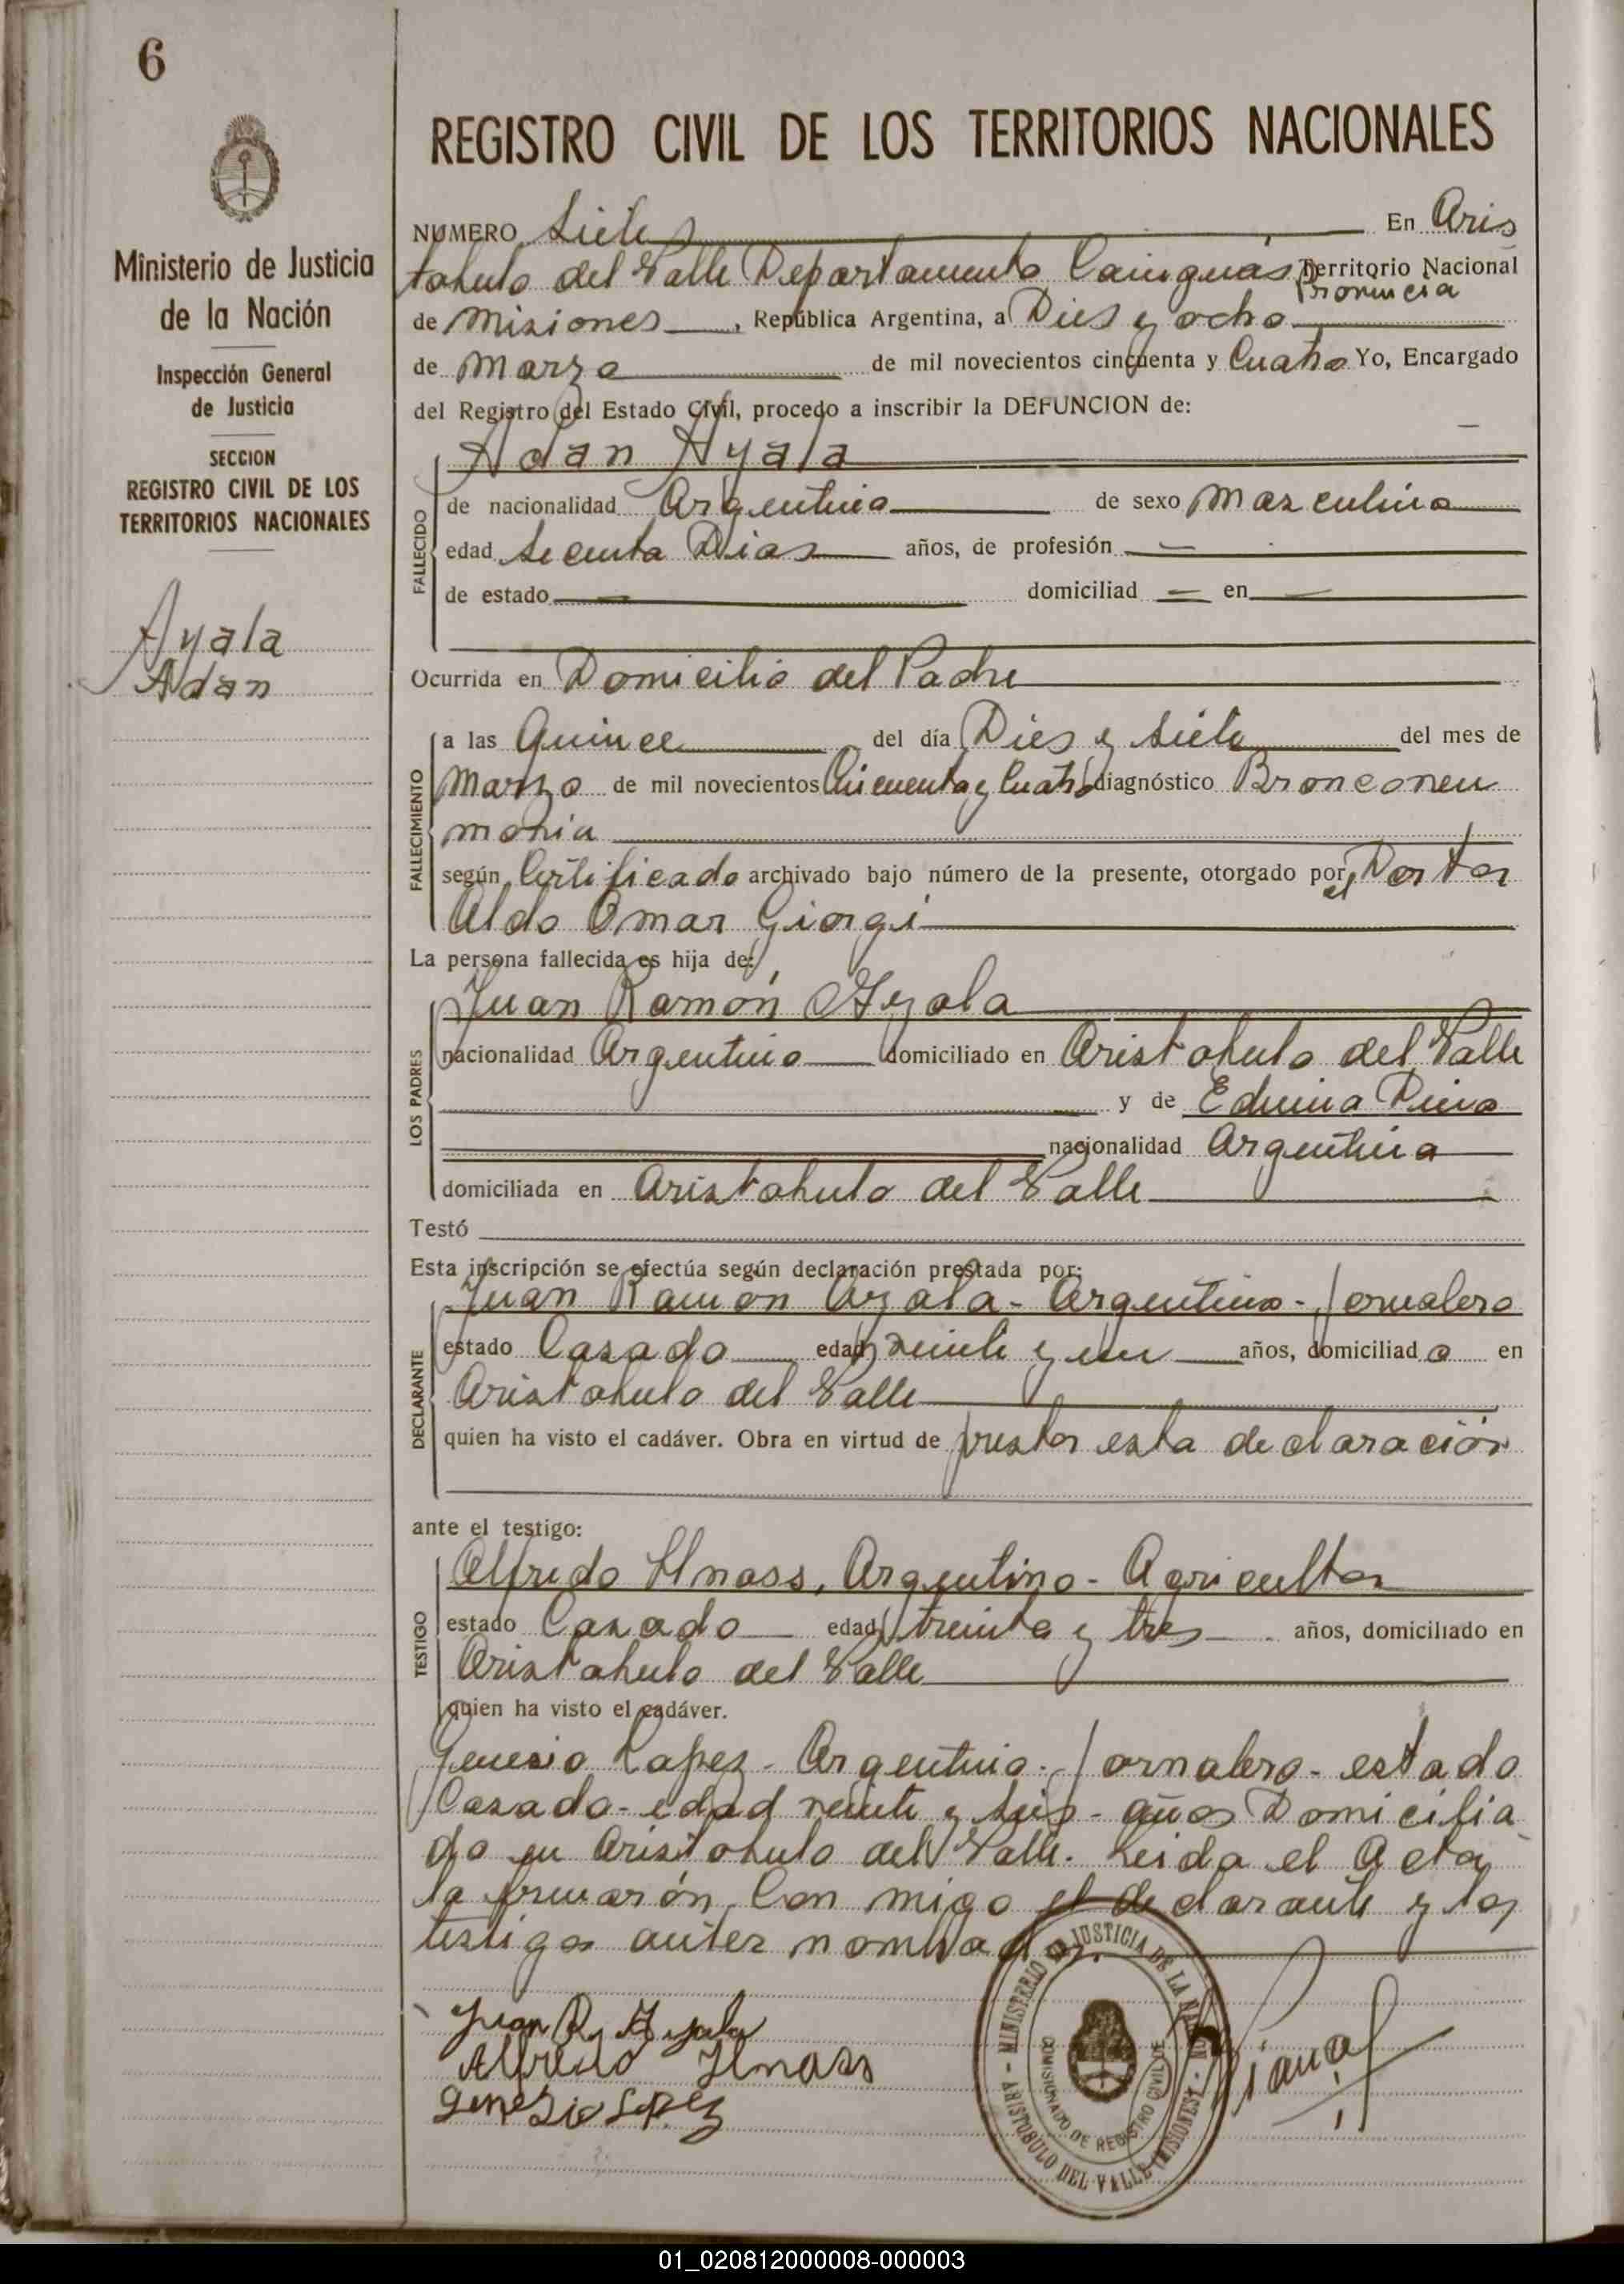 6
REGISTRO CIVIL DE LOS TERRITORIOS NACIONALES
Ministerio de Justicia
de la Nación
Inspección General
de Justicia
SECCION
REGISTRO CIVIL DE LOS
TERRITORIOS NACIONALES
Ayala
Adan
NUMERO Siete En Aris
tobulo del Valle Departamento Cainguás Territorio Nacional
Provincia
de Misiones, República Argentina, a Dies y ocho
de Marzo de mil novecientos cincuenta y Cuatro Yo, Encargado
del Registro del Estado Civil, procedo a inscribir la DEFUNCION de:
Adan Ayala
FALLECIDO
de nacionalidad Argentina de sexo Masculino
edad Secenta Dias años, de profesión —
de estado — domiciliad — en —
Ocurrida en Domicilio del Padre
FALLECIMIENTO
a las Quince del día Dies y Siete del mes de
Marzo de mil novecientos Cincuenta y Cuatro diagnóstico Bronconeu
monia
según Certificado archivado bajo número de la presente, otorgado por el Doctor
Aldo Omar Giorgi
La persona fallecida es hija de:
LOS PADRES
Juan Ramón Ayala
nacionalidad Argentino domiciliado en Aristobulo del Valle
y de Eduina
nacionalidad Argentina
domiciliada en Aristobulo del Valle
Testó
Esta inscripción se efectúa según declaración prestada por:
DECLARANTE
Juan Ramon Ayala - Argentino - Jornalero
estado Casado edad veinte y un años, domiciliado en
Aristobulo del Valle
quien ha visto el cadáver. Obra en virtud de prestar esta declaración
ante el testigo:
TESTIGO
Alfredo Ilnass, Argentino - Agricultor
estado Casado edad treinta y tres años, domiciliado en
Aristobulo del Valle
quien ha visto el cadáver.
Genesio Lopez - Argentino - Jornalero - estado
Casado - edad veinte y seis - años Domicilia
do en Aristobulo del Valle. Leida el Acta
la firmarón Con migo el declarante y los
testigos antes nombrados.
Juan R. Ayala
Alfredo Ilnass
Genesio Lopez
MINISTERIO DE JUSTICIA DE LA NACION
COMISIONADO DE REGISTRO CIVIL DE
ARISTOBULO DEL VALLE (MISIONES)
01_020812000008-000003